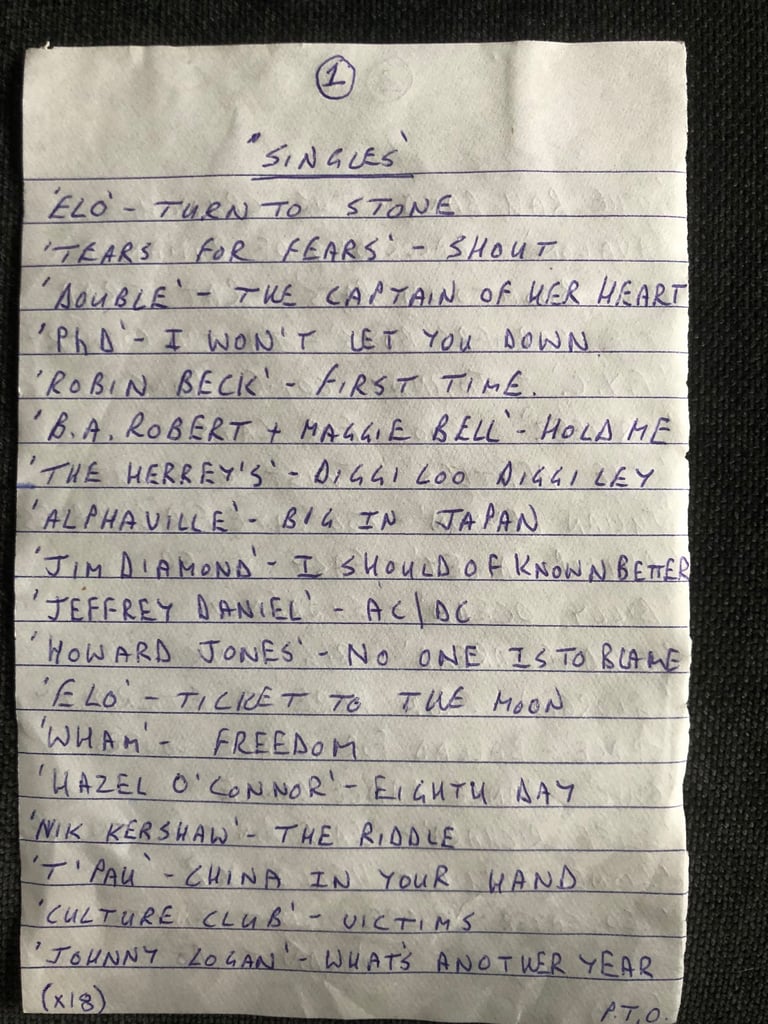 1
'SINGLES'
'ELO' - TURN TO STONE
'TEARS FOR FEARS' - SHOUT
'DOUBLE' - THE CAPTAIN OF HER HEART
'PhD' - I WON'T LET YOU DOWN.
'ROBIN BECK' - FIRST TIME.
'B.A. ROBERT + MAGGIE BELL' - HOLD ME
'THE HERREY'S' - DIGGI LOO DIGGI LEY
'ALPHAVILLE' - BIG IN JAPAN
'JIM DIAMOND' - I SHOULD OF KNOWN BETTER
'JEFFREY DANIEL' - AC/DC
'HOWARD JONES' - NO ONE IS TO BLAME
'ELO' - TICKET TO THE MOON
'WHAM' - FREEDOM
'HAZEL O'CONNOR' - EIGHTH DAY
'NIK KERSHAW' - THE RIDDLE
'T'PAU' - CHINA IN YOUR HAND
'CULTURE CLUB' - VICTIMS
'JOHNNY LOGAN' - WHAT'S ANOTHER YEAR
(x18) P.T.O.